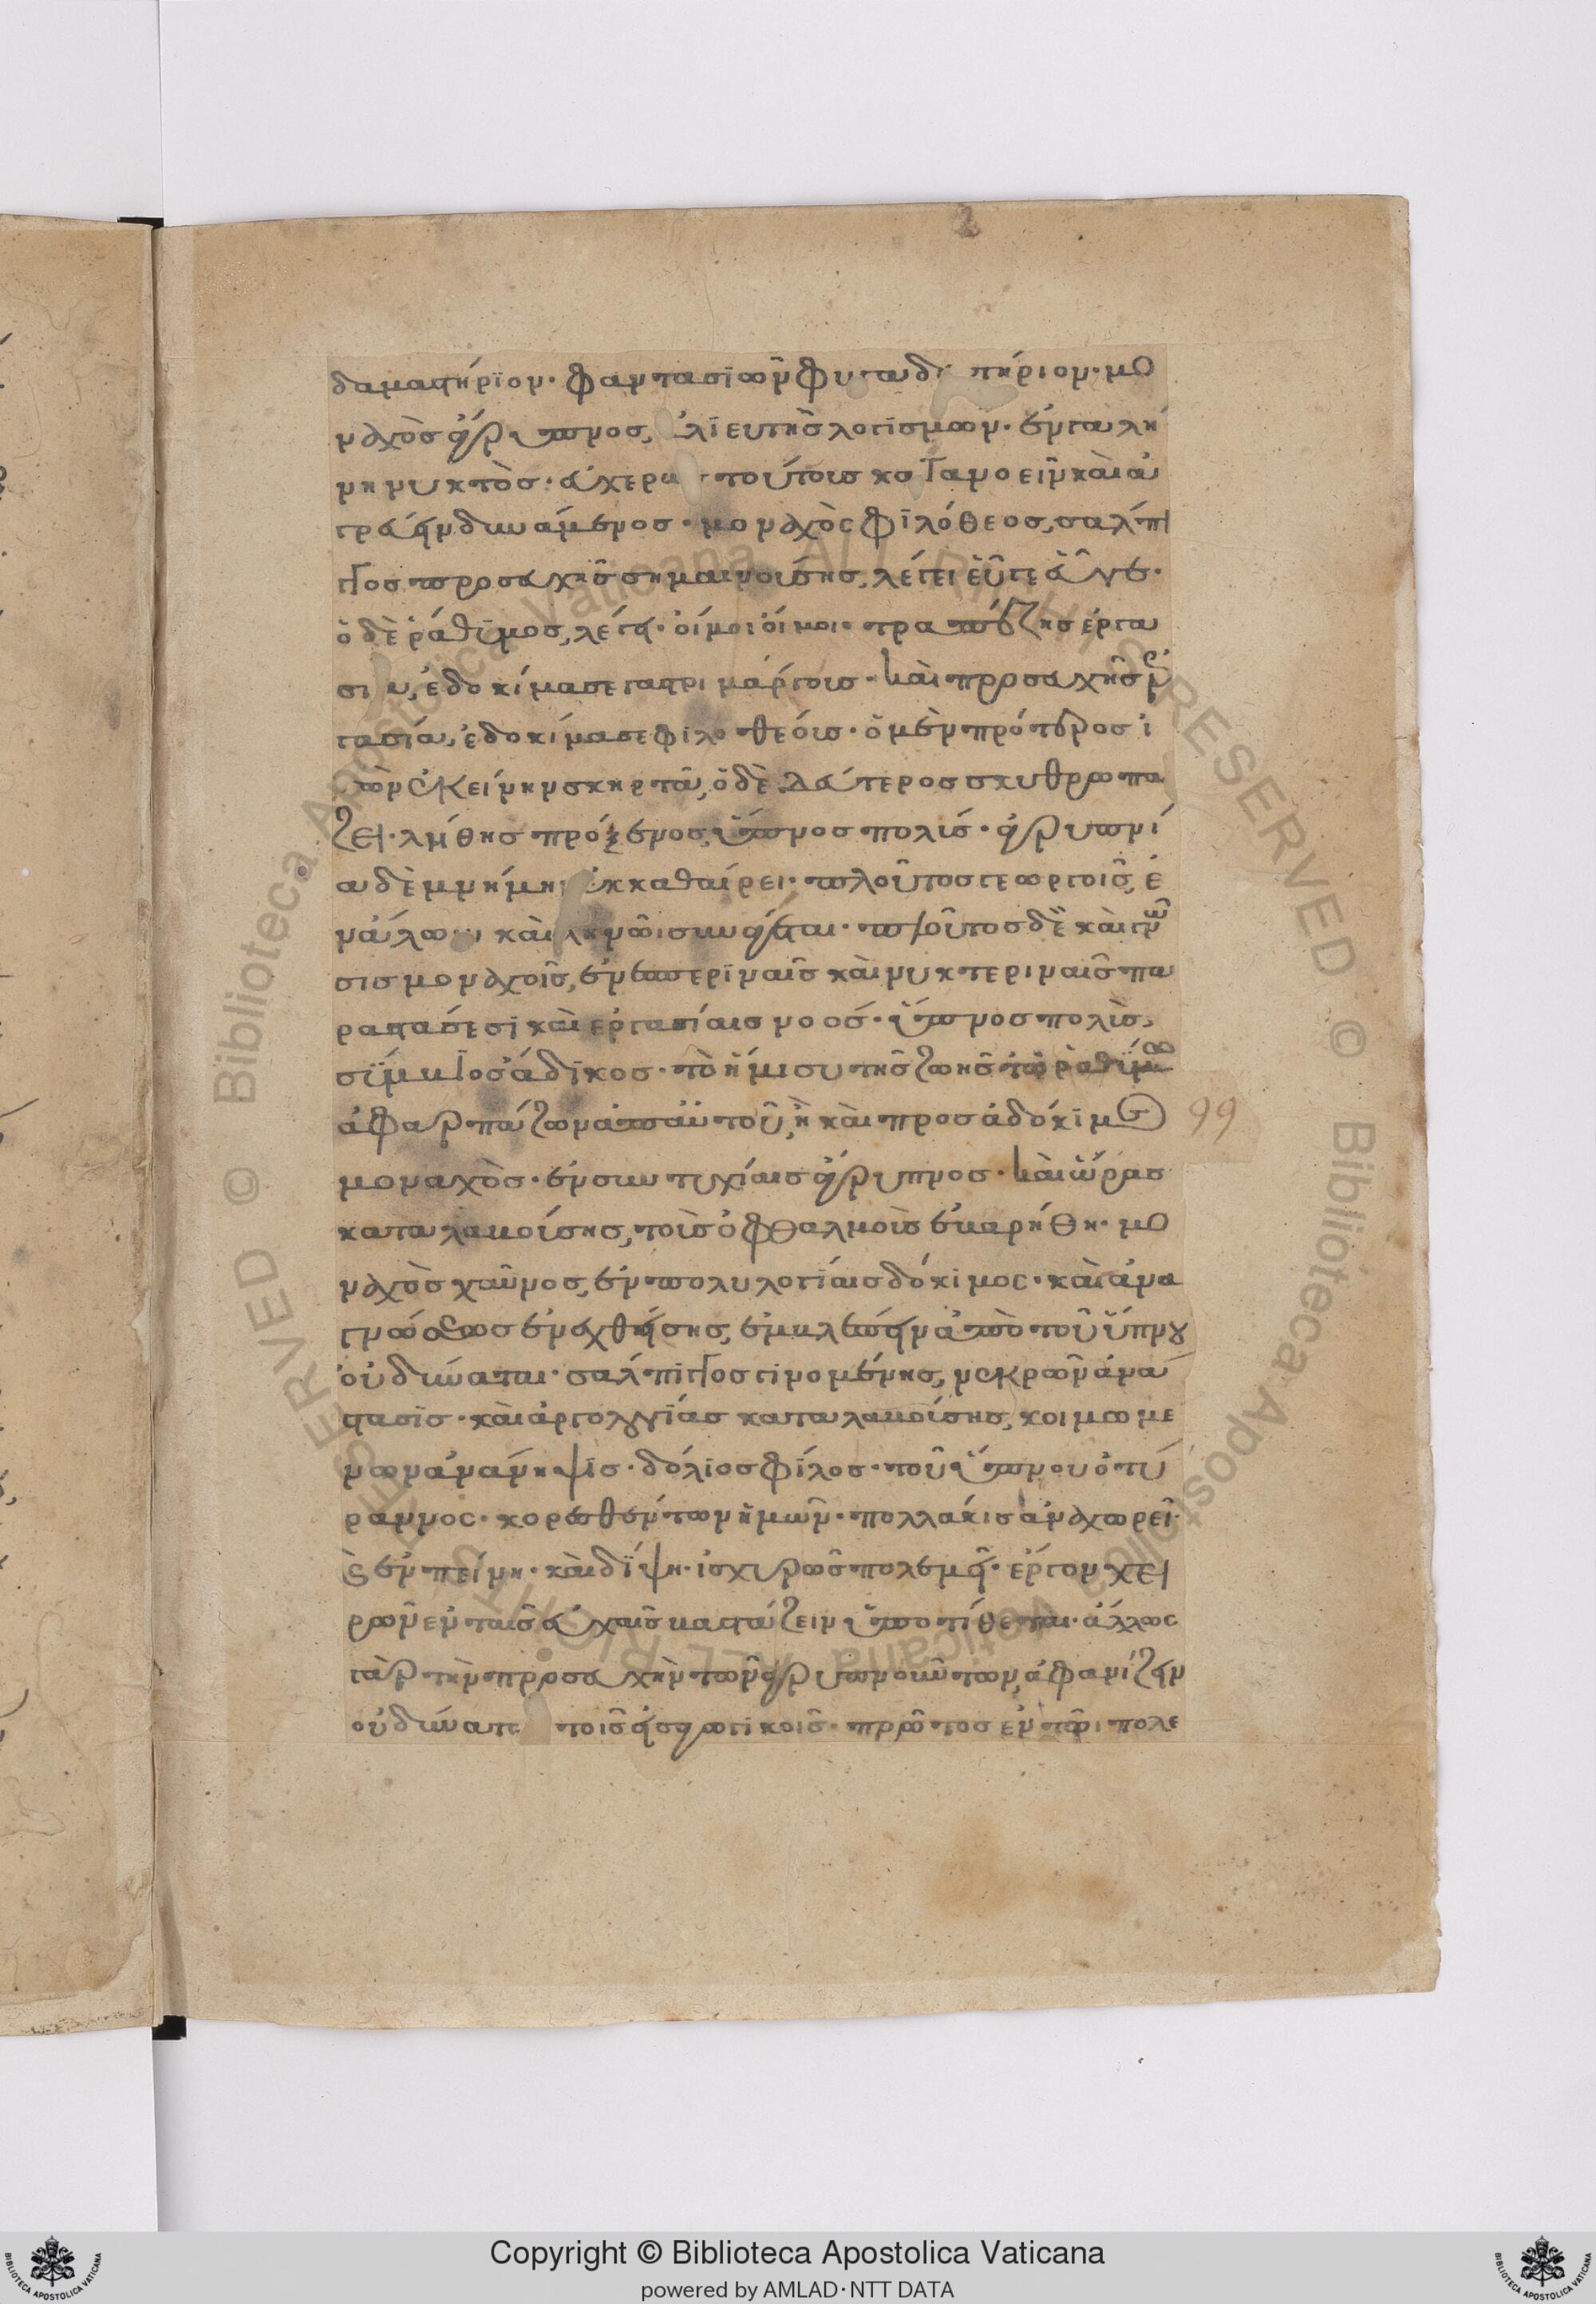 2
δαμαστήριον· φαντασιῶν φυγαδευτήριον· μο
ναχὸς ἄγρυπνος, ἁλιευτὴς λογισμῶν· ἐν γαλή
νη νυκτὸς· εὐχερῶς τούτους κατανοεῖν καὶ ἀ
γρεύειν δυνάμενος· μοναχὸς φιλόθεος, σάλπι
γγος προσευχῆς σημαινούσης, λέγει εὖγε εὖγε·
ὁ δὲ ῥάθυμος, λέγει· οἴμοι οἴμοι· τραπέζης ἑργα
σία, ἐδοκίμασε γαστριμάργους· καὶ προσευχῆς ἐρ
γασία, ἐδοκίμασε φιλοθέους· ὁ μὲν πρότερος ἰ
δὼν ἐκείνην σκιρτᾶ, ὁ δὲ δεύτερος σκυθρωπά
ζει· λήθης πρόξενος, ὕπνος πολύς· ἀγρυπνί
α δὲ μνήμην ἐκκαθαίρει· πλοῦτος γεωργοῖς, ἐ
ν ἅλωνι καὶ ληνῶ συνάγεται· πλοῦτος δὲ καὶ γνῶ
σις μοναχοῖς, ἐν ἑσπεριναῖς καὶ νυκτεριναῖς πα
ραστάσεσι καὶ ἐργασίαις νοός· ὕπνος πολὺς,
σύζυγος ἄδικος· τὸ ἥμισυ τῆς ζωῆς τῶ ῥαθύμω
ἀφαρπάζων ἀπ' αὐτοῦ, ἢ καὶ πρὸς ἀδόκιμος
μοναχὸς· ἐν συντυχίαις ἄγρυπνος· καὶ ὥρας
καταλαβούσης, τοὺς ὀφθαλμοὺς ἐβαρήθη· μο
ναχὸς χαῦνος, ἐν πολυλογίαις δόκιμος· καὶ ἀνα
γνώσεως ἐνεχθείσης, ἐμβλέπειν ἀπὸ τοῦ ὕπνου
οὐ δύναται· σάλπιγγος γινομένης, νεκρῶν ἀνά
στασις· καὶ ἀργολογίας καταλαβούσης, κοιμωμέ
νων ἀνάνηψις· δόλιος φίλος· τοῦ ὕπνου ὁ τύ
ραννος· κορεσθέντων ἡμῶν· πολλάκις ἀναχωρεῖ·
καὶ ἐν πείνη· καὶ δίψη· ἰσχυρῶς πολεμεῖ· ἔργον χει
ρῶν ἐν ταῖς εὐχαῖς βαστάζειν ὑποτίθεται· ἄλλως
γὰρ τὴν προσευχὴν τῶν ἀγρυπνούντων, ἀφανίζειν
οὐ δύναται τοῖς εἰσαγωγικοῖς· πρῶτος ἐνταῦθα πολε
99
Copyright © Biblioteca Apostolica Vaticana
powered by AMLAD·NTT DATA